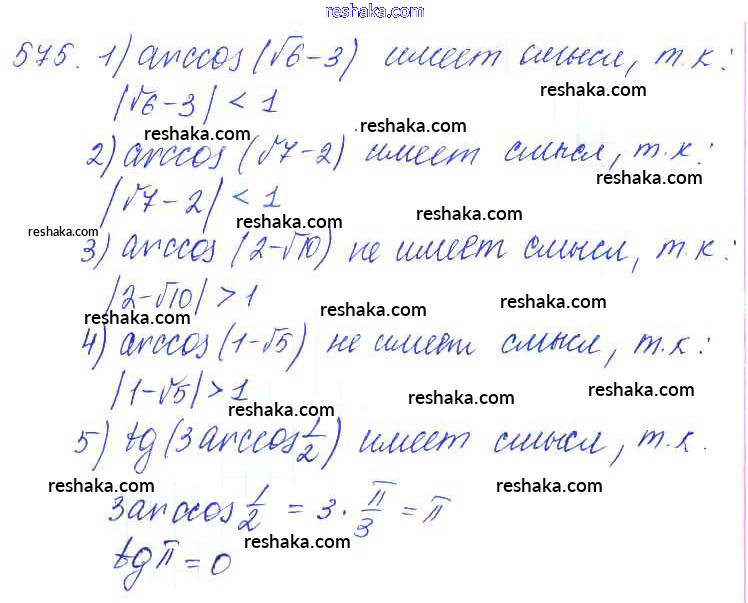 reshaka.com
575. 1) arccos (√6-3) имеет смысл, т.к:
reshaka.com
|√6-3| < 1
reshaka.com reshaka.com
2) arccos (√7-2) имеет смысл, т.к:
reshaka.com
|√7-2| < 1
reshaka.com reshaka.com
reshaka.com
3) arccos (2-√10) не имеет смысл, т.к:
reshaka.com
|2-√10| > 1
reshaka.com reshaka.com reshaka.com
4) arccos (1-√5) не имеет смысл, т.к:
reshaka.com
|1-√5| > 1
reshaka.com reshaka.com reshaka.com
5) tg (3arccos 1/2) имеет смысл, т.к.
reshaka.com reshaka.com reshaka.com
3arccos 1/2 = 3 · π/3 = π
reshaka.com
tg π = 0
reshaka.com